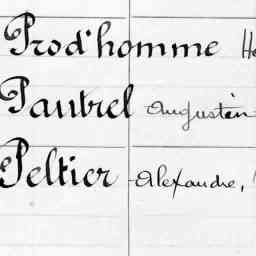 Prod'homme He
Pautrel Augustin
Peltier Alexandre,